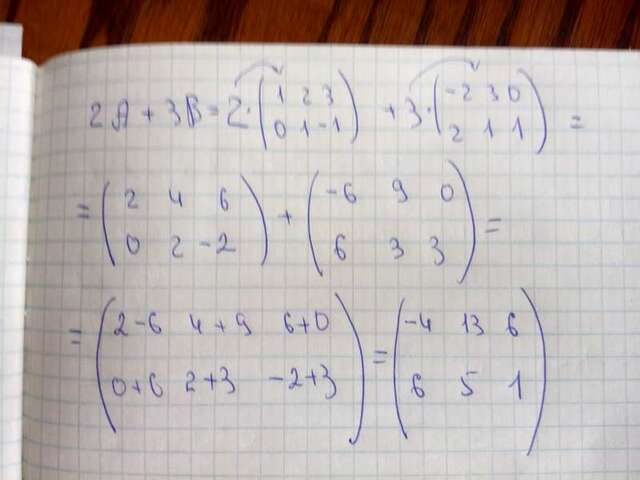 2A + 3B = 2·( 1 2 3 ; 0 1 -1 ) + 3·( -2 3 0 ; 2 1 1 ) =
= ( 2 4 6 ; 0 2 -2 ) + ( -6 9 0 ; 6 3 3 ) =
= ( 2-6 4+9 6+0 ; 0+6 2+3 -2+3 ) = ( -4 13 6 ; 6 5 1 )